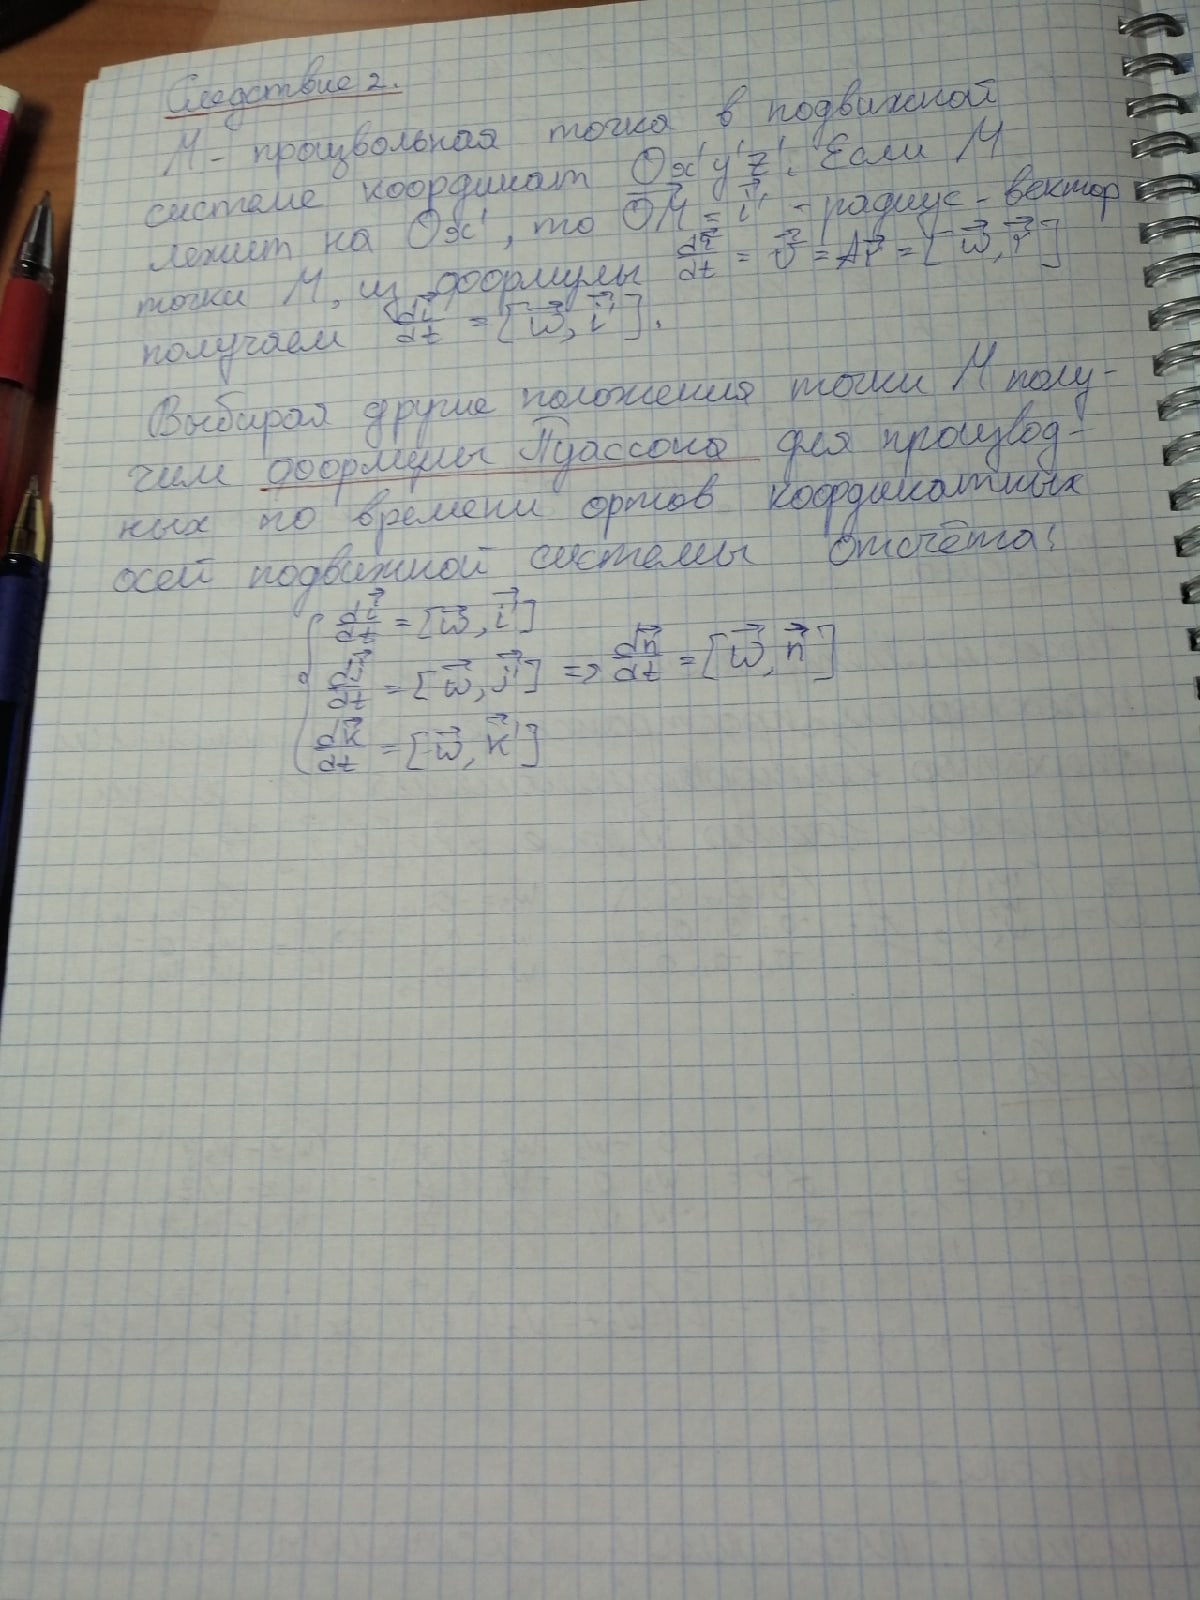 Следствие 2.
M - произвольная точка в подвижной
системе координат Ox'y'z'. Если M
лежит на Ox', то \vec{OM} = \vec{i}' - радиус-вектор
точки M, из формулы \frac{d\vec{r}}{dt} = \vec{v} = A\vec{r} = [\vec{w}, \vec{r}]
получаем \frac{d\vec{i}'}{dt} = [\vec{w}, \vec{i}'].
Выбирая другие положения точки M полу-
чим формулы Пуассона для производ-
ных по времени ортов координатных
осей подвижной системы отсчёта:
\frac{d\vec{i}'}{dt} = [\vec{w}, \vec{i}']
\frac{d\vec{j}'}{dt} = [\vec{w}, \vec{j}'] => \frac{d\vec{n}}{dt} = [\vec{w}, \vec{n}]
\frac{d\vec{k}'}{dt} = [\vec{w}, \vec{k}']